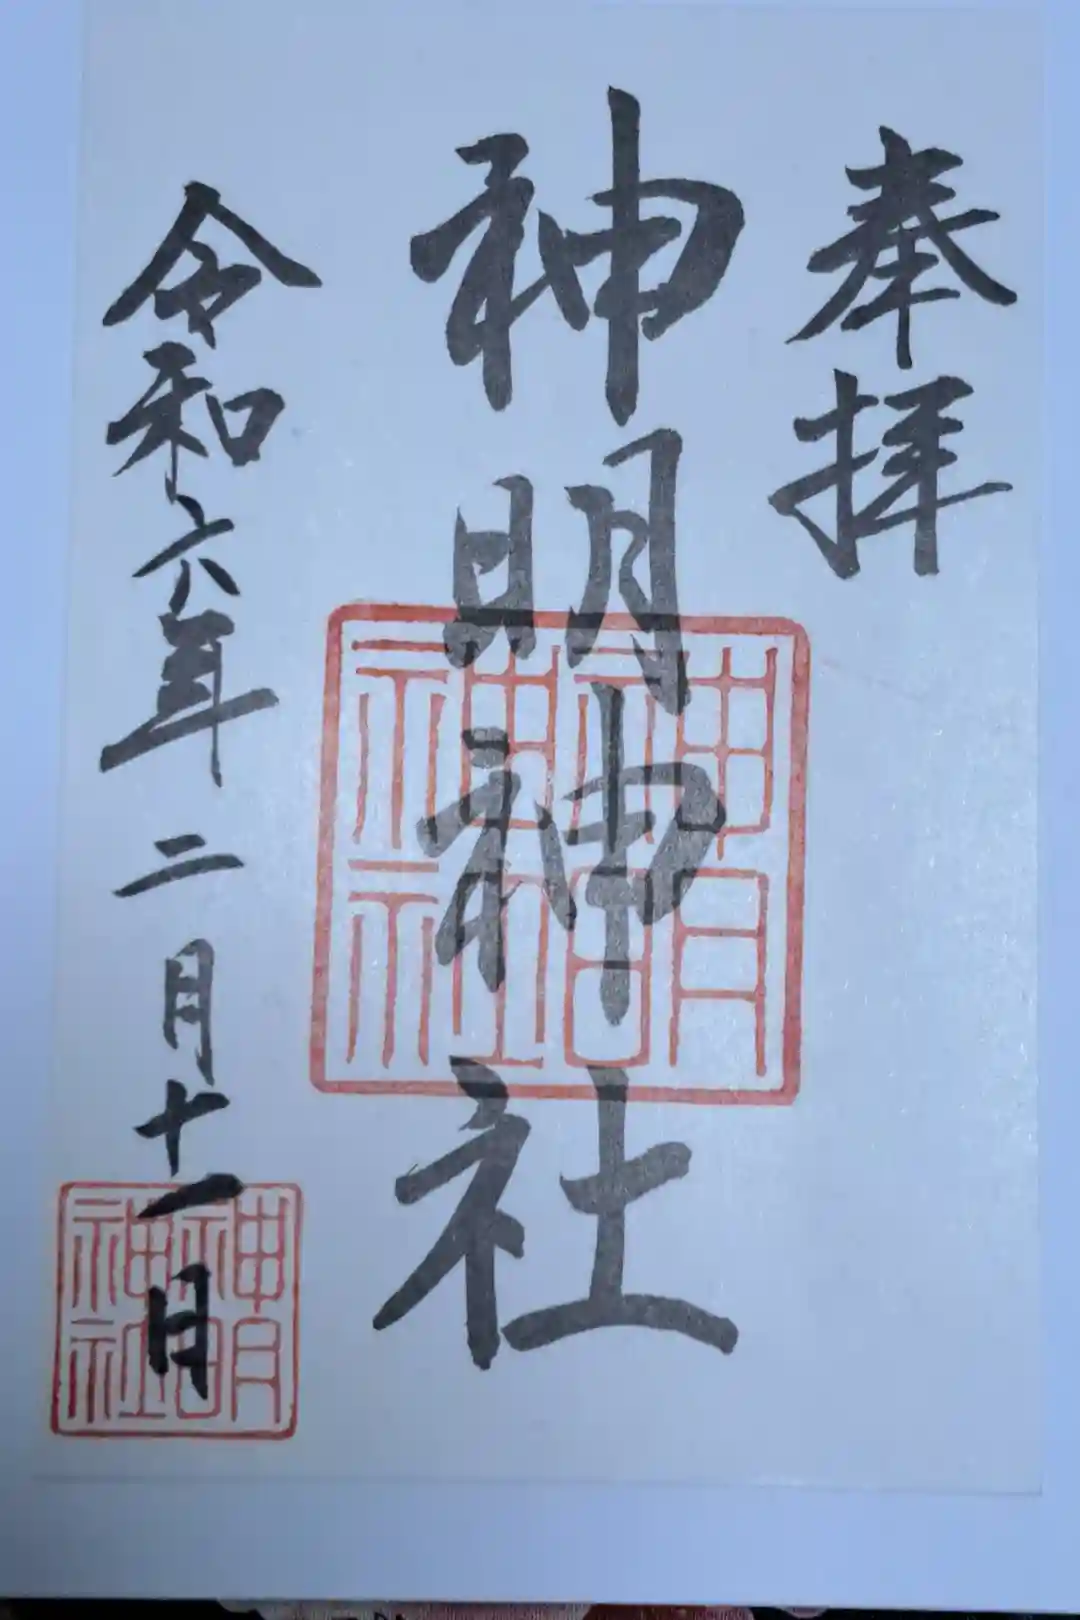 奉拝
神明神社
神明
神社
令和六年二月十一日
神明
神社